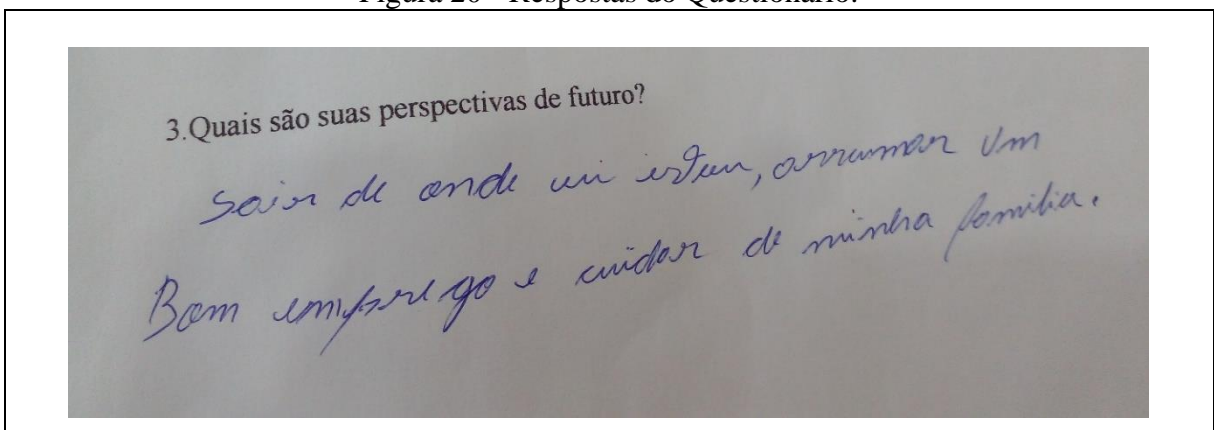 Figura - Respostas do Questionário.
3.Quais são suas perspectivas de futuro?
Sair de onde eu estou, arrumar um
Bom emprego e cuidar de minha familia.